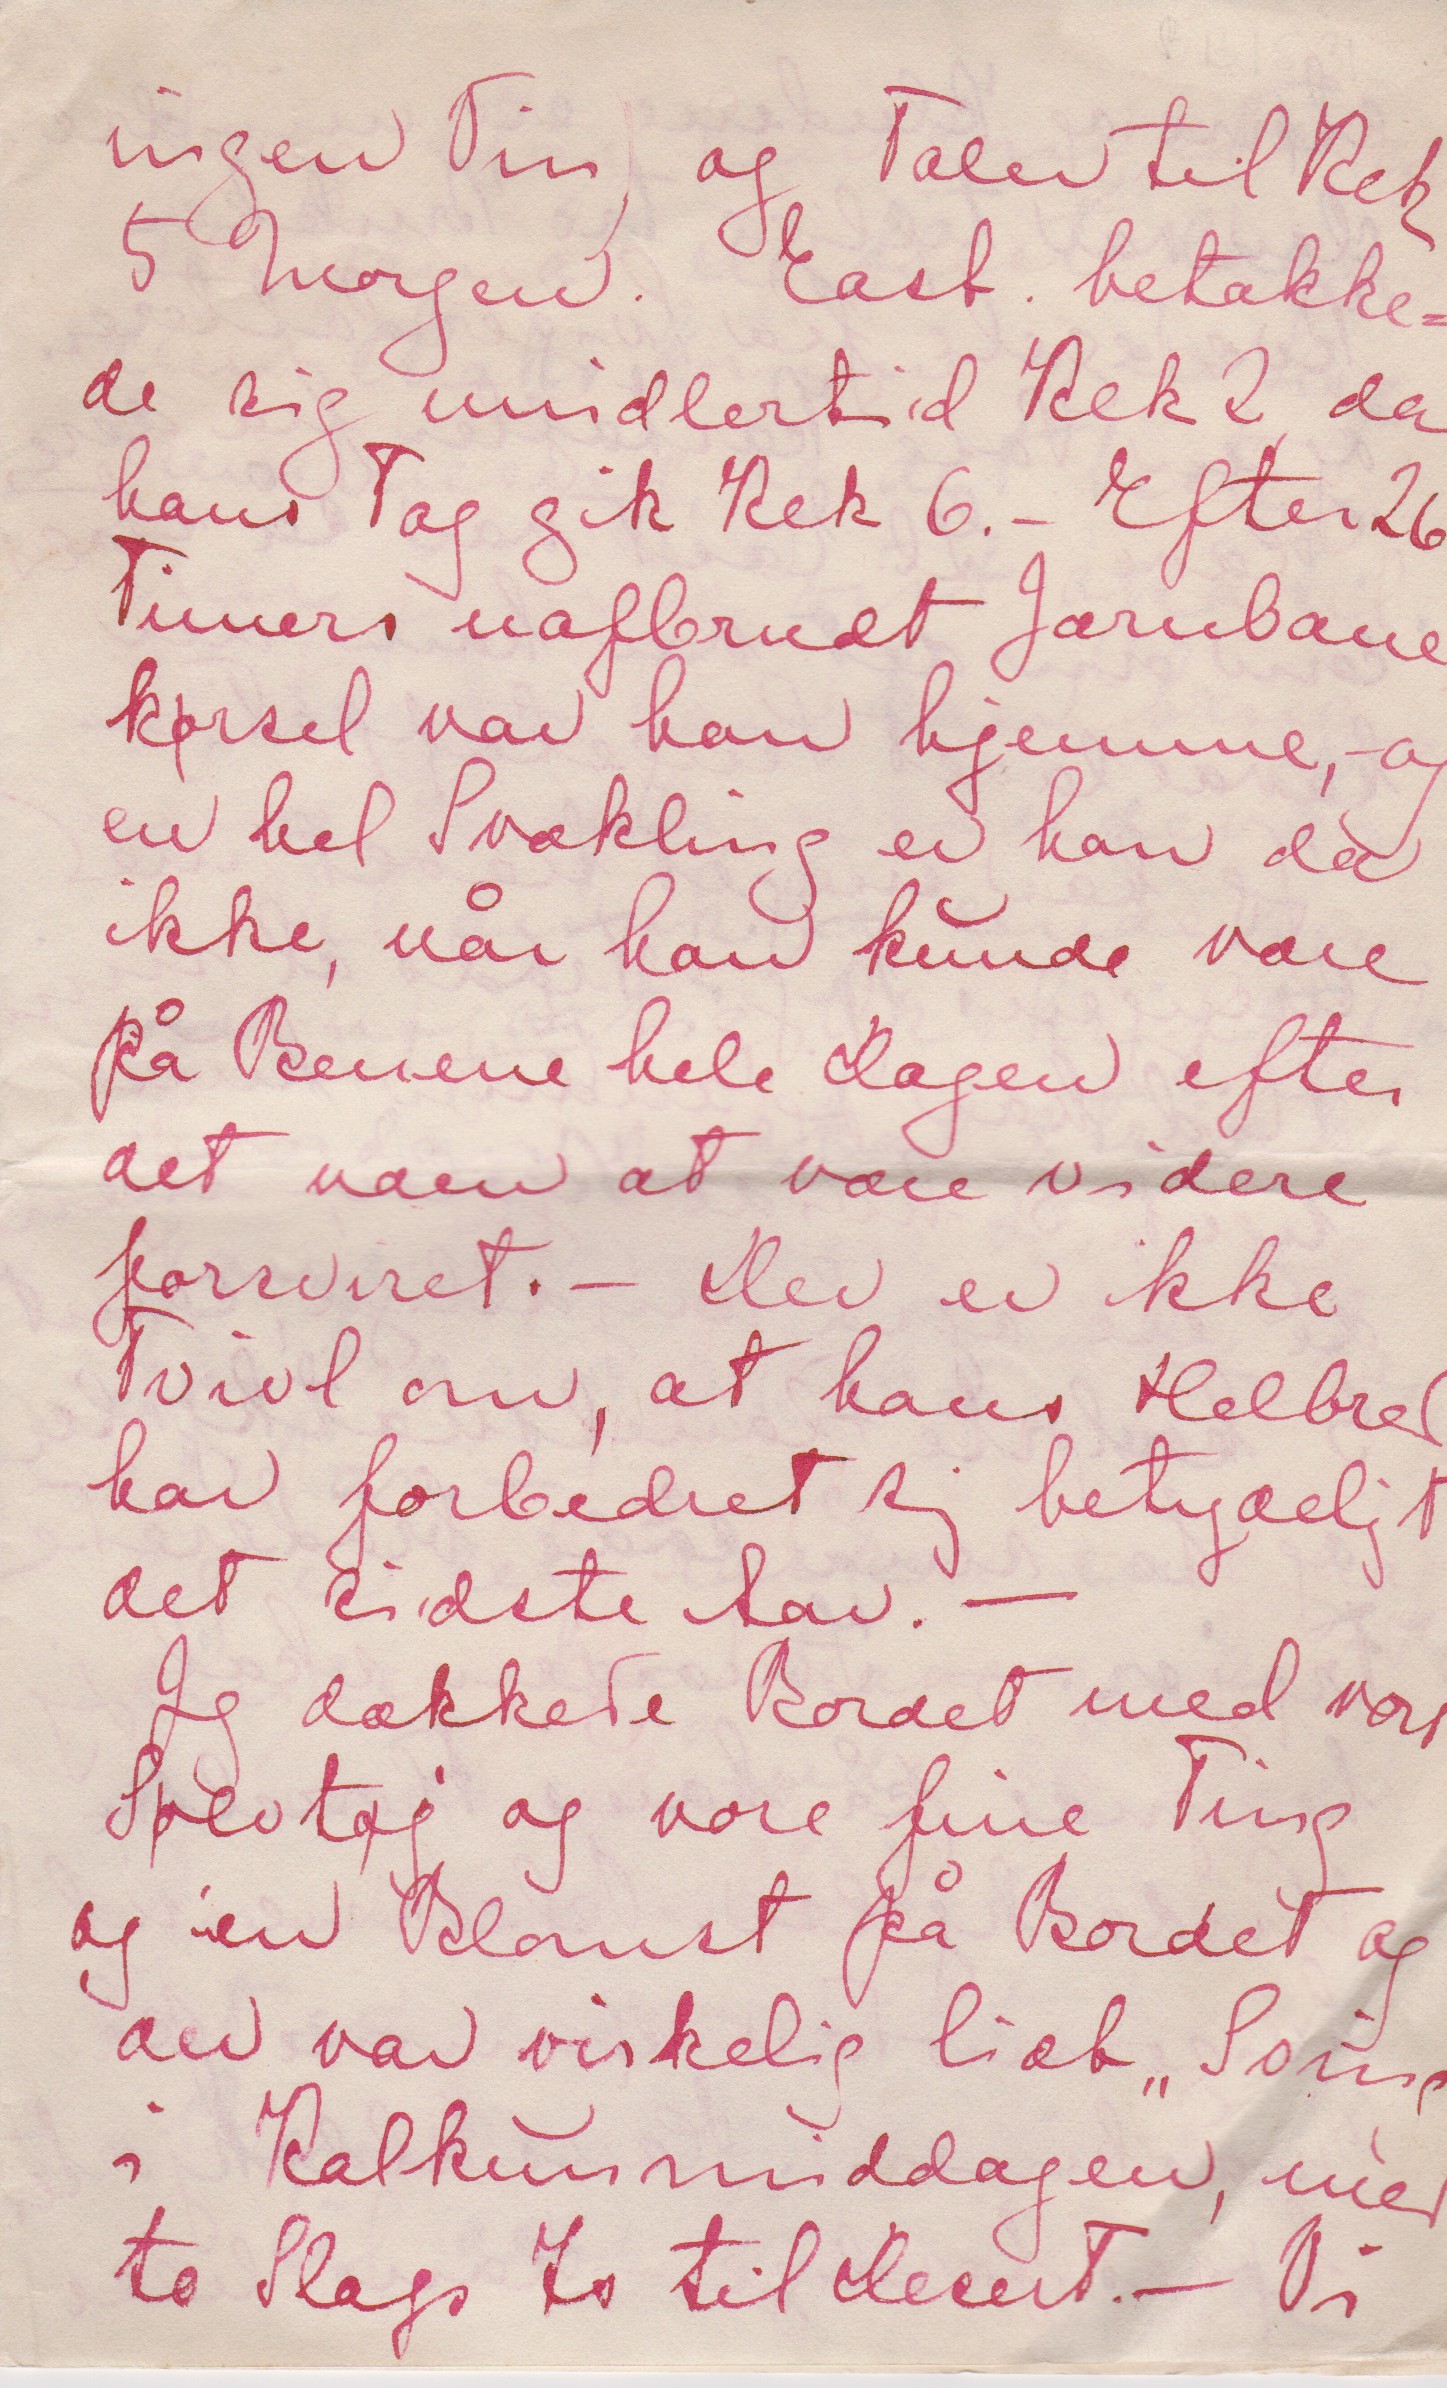 ingen Vin, og Talen til Kek
5 Morgen. East. betakke=
de sig imidlertid Klk 2, da
hans Tog gik Klk 6. - Efter 26
Timers uafbrudt Jærnbane
kørsel var han hjemme, - og
en hel Svækling er han da
ikke, når han kunde være
på Benene hele Dagen efter
det uden at være videre
forsviret. - Der er ikke
Tvivl om, at hans Helbred
har forbedret sig betydeligt
det sidste Aar. -
Jg dækkede Bordet med vort
Sølvtøj og vore fine Ting
og en Blomst på Bordet og
der var virkelig lidt „Sving
i Kalkunmiddagen, med
to Slags Is til Desert. - Vi